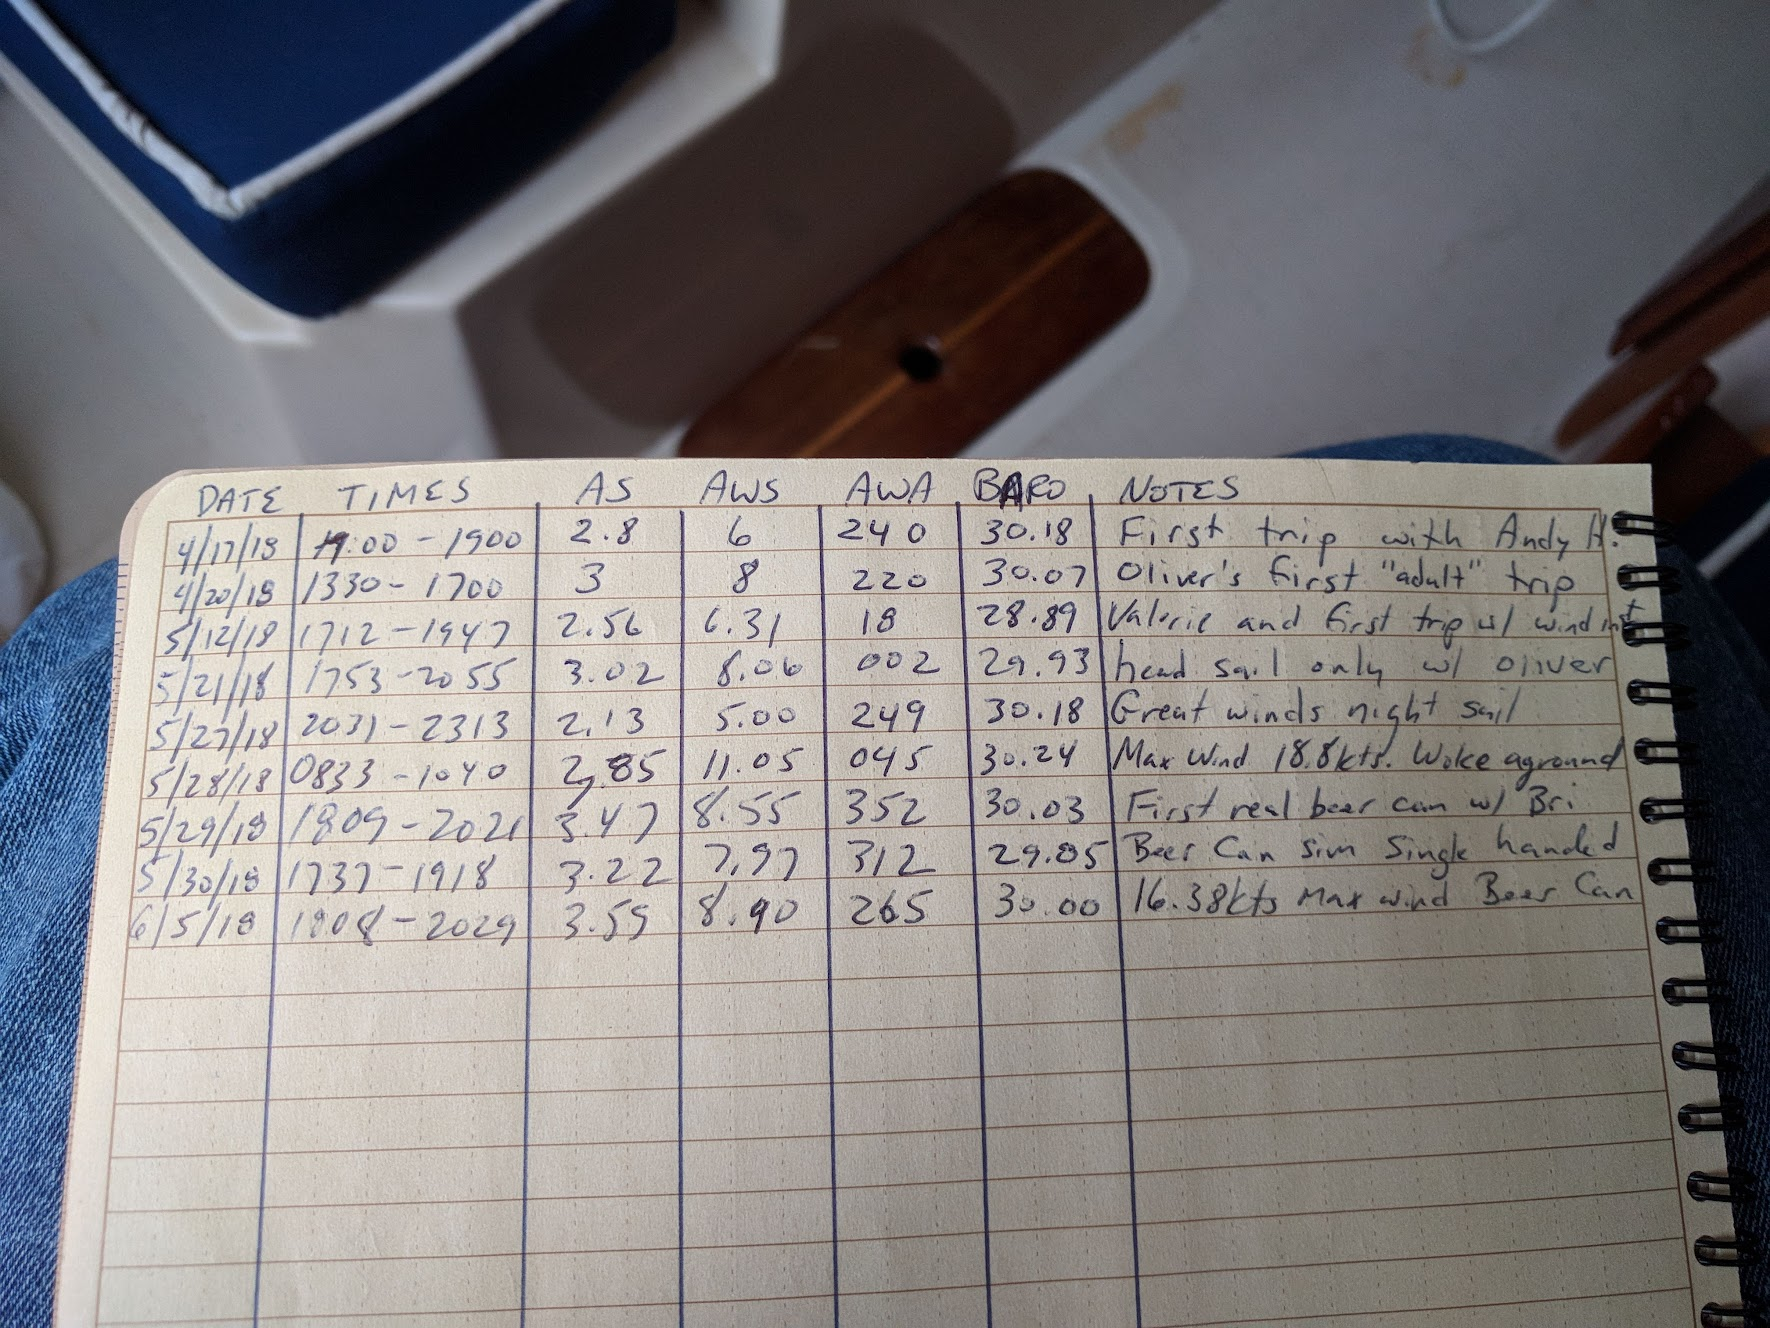 DATE TIMES AS AWS AWA BARO NOTES
4/17/18 :00 - 1900 2.8 6 240 30.18 First trip with Andy H.
4/20/18 1330 - 1700 3 8 220 30.07 Oliver's first "adult" trip
5/12/18 1712 - 1947 2.56 6.31 18 28.89 Valerie and first trip w/ wind inst
5/21/18 1753 - 2055 3.02 8.06 002 29.93 head sail only w/ oliver
5/27/18 2031 - 2313 2.13 5.00 249 30.18 Great winds night sail
5/28/18 0833 - 1040 2.85 11.05 045 30.24 Max Wind 18.8kts. Woke aground
5/29/18 1809 - 2021 3.47 8.55 352 30.03 First real beer can w/ Bri
5/30/18 1737 - 1918 3.22 7.97 312 29.85 Beer Can sim Single handed
6/5/18 1808 - 2029 3.59 8.90 265 30.00 16.38kts Max wind Beer Can